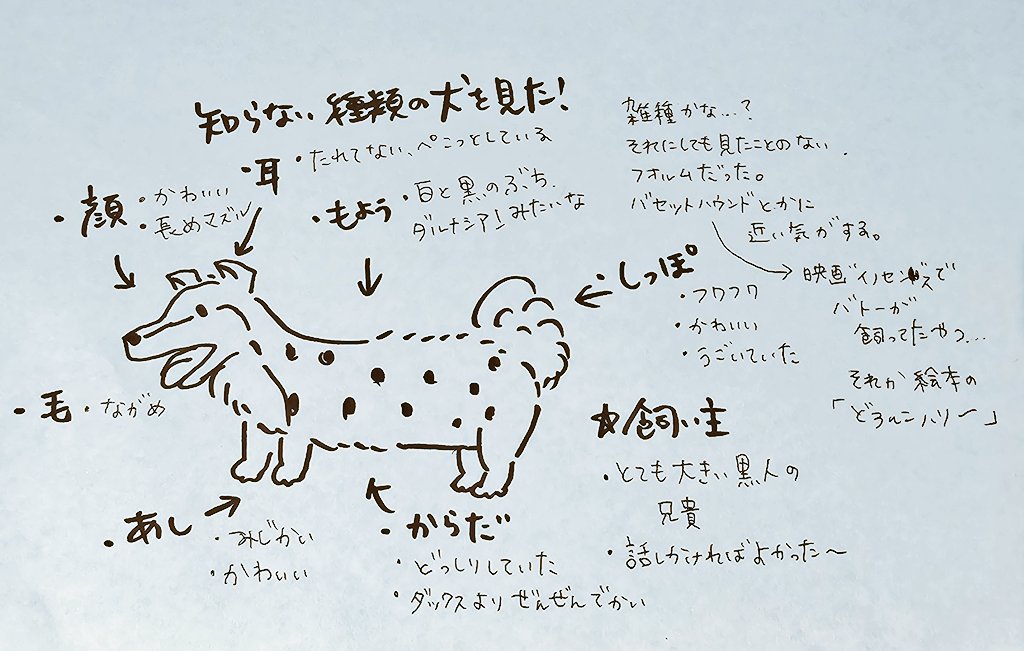 知らない種類の犬を見た!
・耳
・たれてない、ぺこっとしている
・顔
・かわいい
・長めマズル
・もよう
・白と黒のぶち、
ダルメシアンみたいな
・しっぽ
・フワフワ
・かわいい
・うごいていた
・毛
・ながめ
・あし
・みじかい
・かわいい
・からだ
・どっしりしていた
・ダックスよりぜんぜんでかい
雑種かな…?
それにしても見たことのない
フォルムだった。
バセットハウンドとかに
近い気がする。
映画イノセンスで
バトーが
飼ってたやつ…
それか絵本の
「どろんこハリー」
☆飼い主
・とても大きい黒人の
兄貴
・話しかければよかった〜